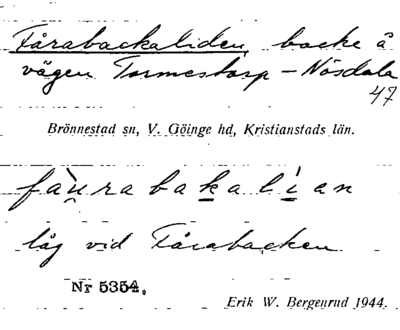 Fårabackaliden, backe å
vägen Tormestorp – Nösdala
47
Brönnestad sn, V. Göinge hd, Kristianstads län.
fàu̯rabakali̱an
låg vid Fårabacken
Nr 5354.
Erik W. Bergenrud 1944.